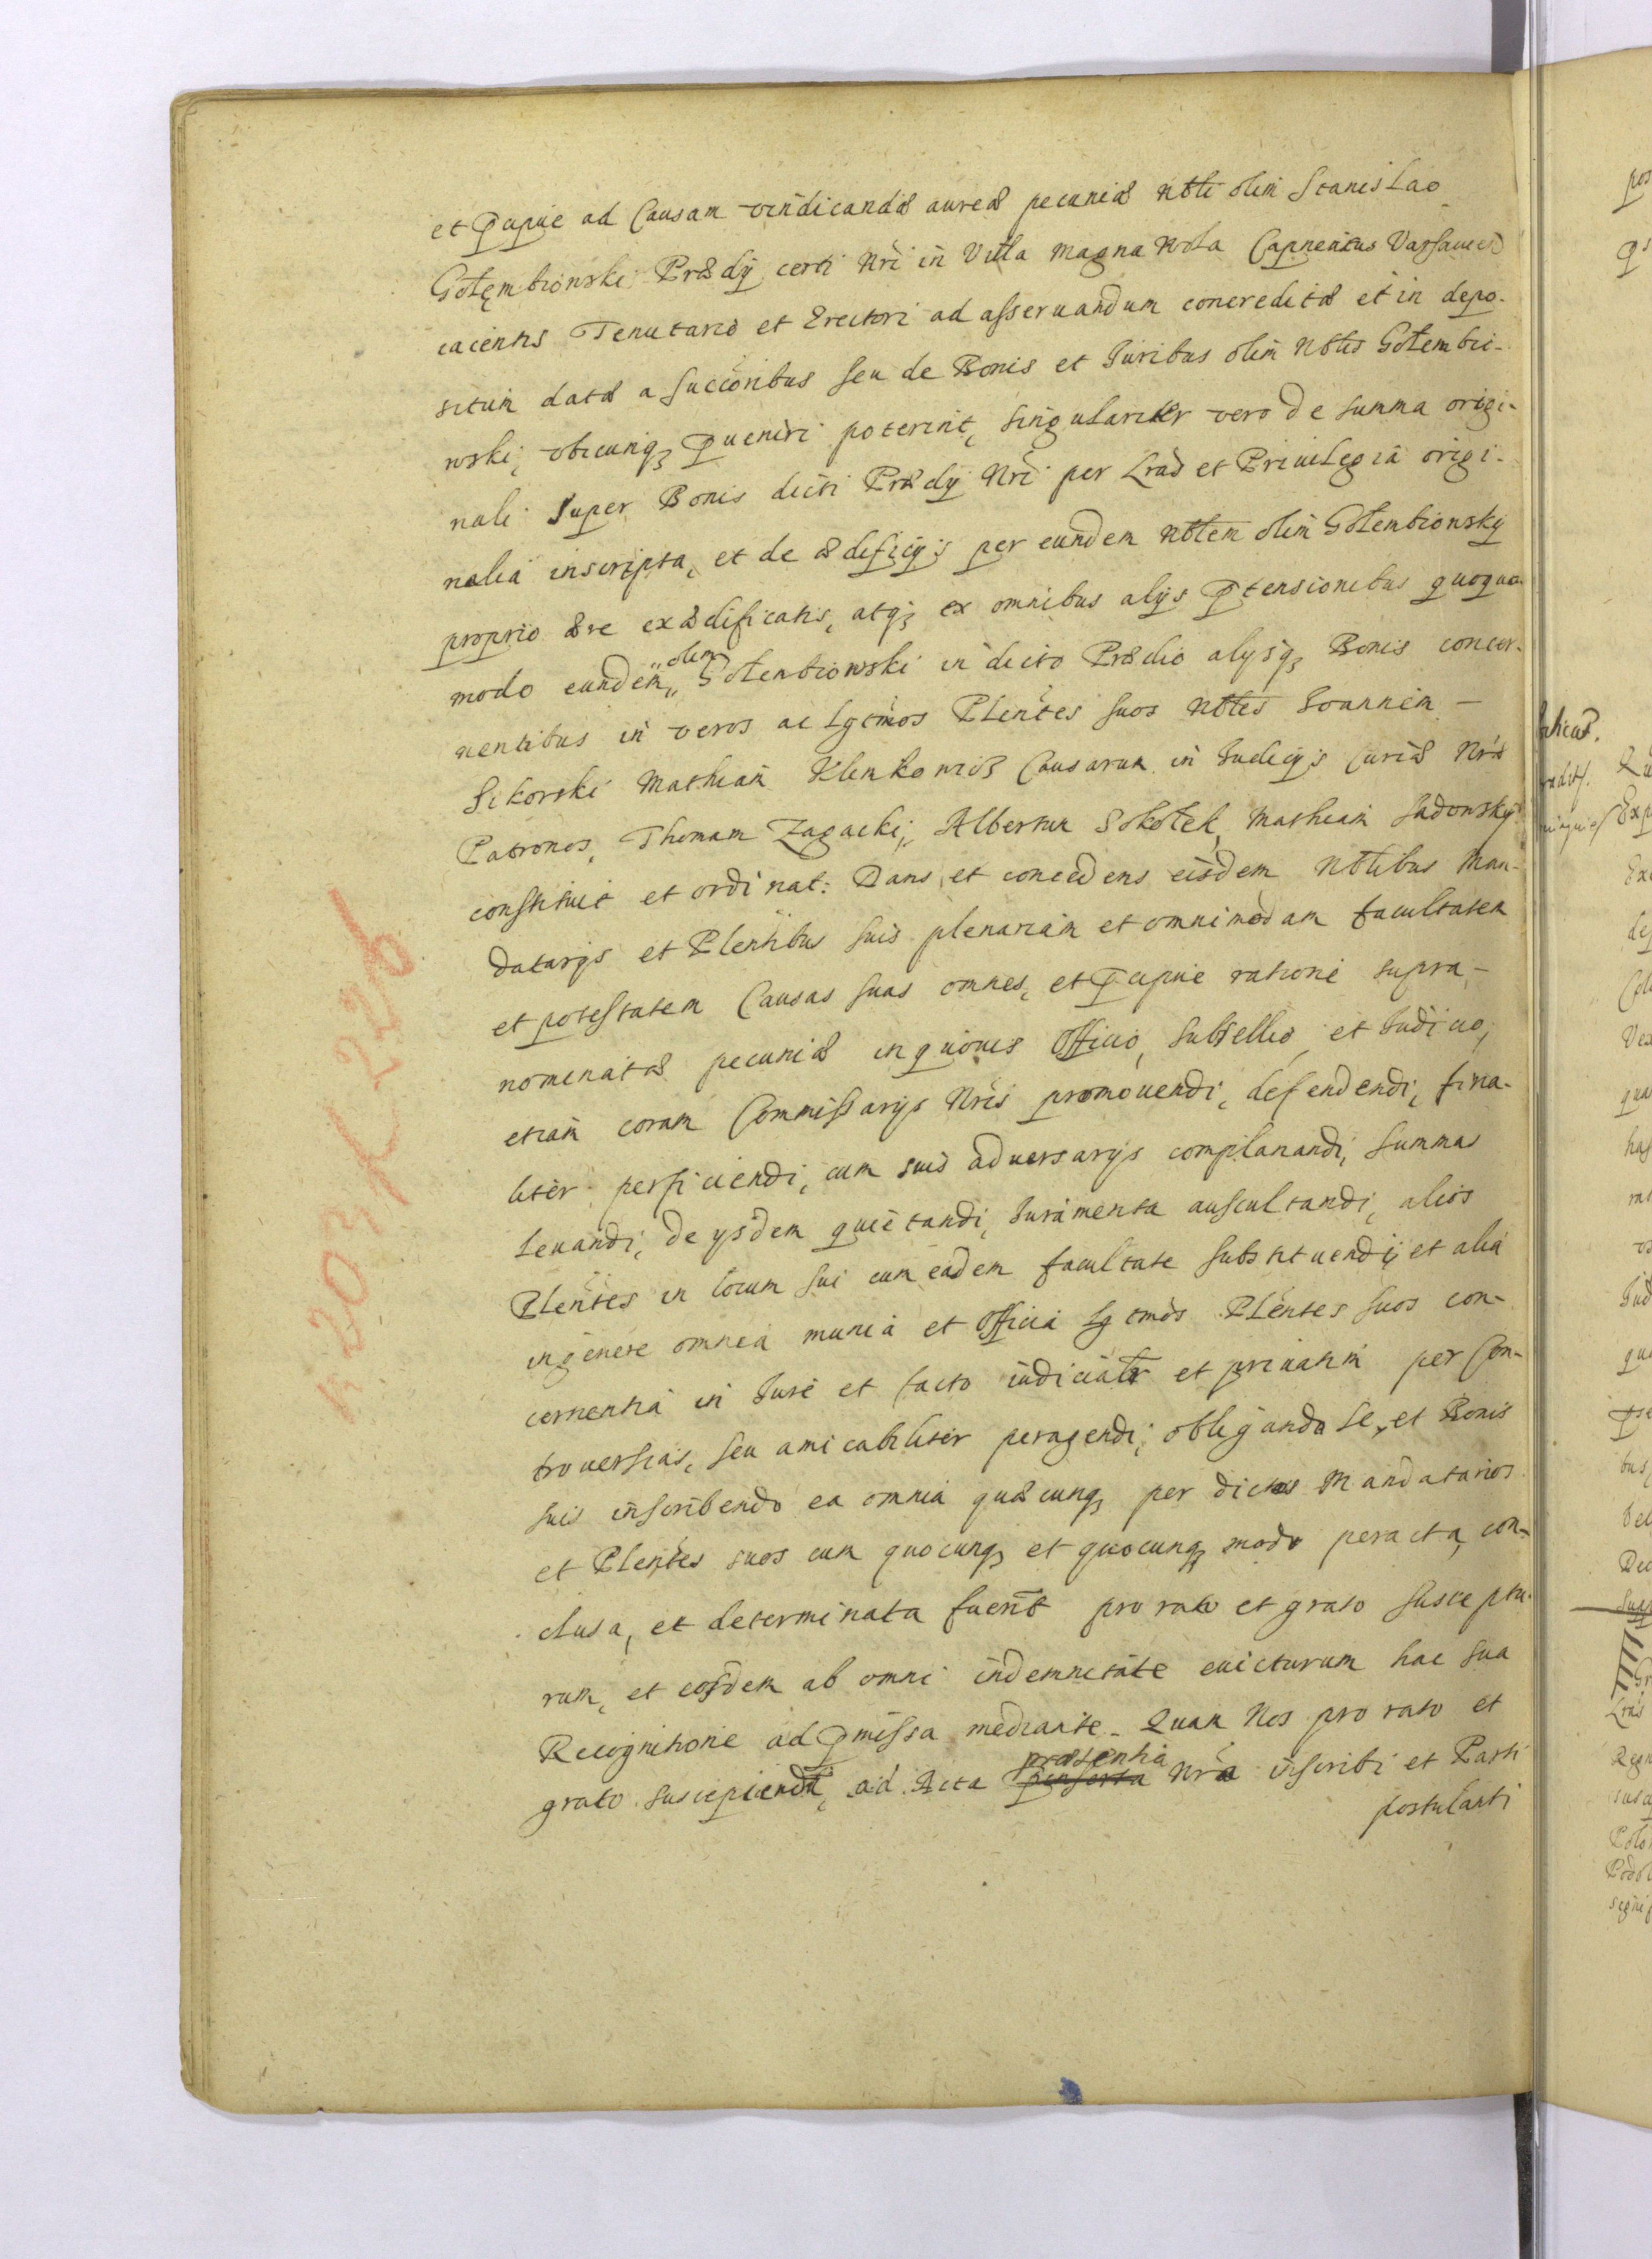 et pcipue ad Causam vindicandæ aureæ pecuniæ Nbli olim Stanislao
Gołęmbiowski Prædij certi Nri in Villa Magna Wola Capneatus Varsauien
iacentis Tenutario et Erectori ad asseruandum concreditæ et in depo-
situm datæ a Succoribus seu de Bonis et Iuribus olim Nblis Gołembio-
wski, vbicunq3 pueniri poterint, singulariter vero de summa origi-
nali super Bonis dicti Prædij Nri per Lras et Priuilegia origi-
nalia inscripta, et de ædificijs per eundem Nblem olim Gołembiowsky
proprio ære exædificatis, atq3 ex omnibus alijs ptensionibus quoquo
modo eundem olim Gołembiowski in dicto Prædio alijsq3 Bonis concer-
nentibus in veros ac Lgtimos Plentes suos Nbles Ioannem -
Sikorski Mathiam Klimkowicz Causarum in Iudicijs Curiæ Nræ
Patronos, Thomam Zagacki, Albertum Sokołek, Mathiam Sadowsky
constituit et ordinat: Dans et concedens eisdem Nblibus Man-
datarijs et Plentibus suis plenariam et omnimodam facultatem
et potestatem Causas suas omnes, et pcipue ratione supra-
nominatæ pecuniæ in quouis Officio, Subsellio et Iudicio,
etiam coram Commissarijs Nris promouendi, defendendi, fina-
liter perficiendi, cum suis aduersarijs complanandi, summas
leuandi, de ijsdem quietandi, Iuramenta auscultandi, alios
Plentes in locum sui cum eadem facultate substituendij et alia
in genere omnia munia et Officia Lgtmos Plentes suos con-
cernentia in Iure et facto iudicialr et priuatim per Con-
trouersias, seu amicabiliter peragendi, obligando se, et Bonis
suis inscribendo ea omnia quæcunq3 per dictos Mandatarios
et Plentes suos cum quocunq3 et quocunq3 modo peracta, con-
clusa, et determinata fuerint pro rato et grato susceptu-
rum, et eosdem ab omni indemnitate euicturum hac sua
Recognitione ad pmissa mediante. Quam Nos pro rato et
grato suscipiendi, ad Acta præsentia Nra inscribi et Parti
postulanti